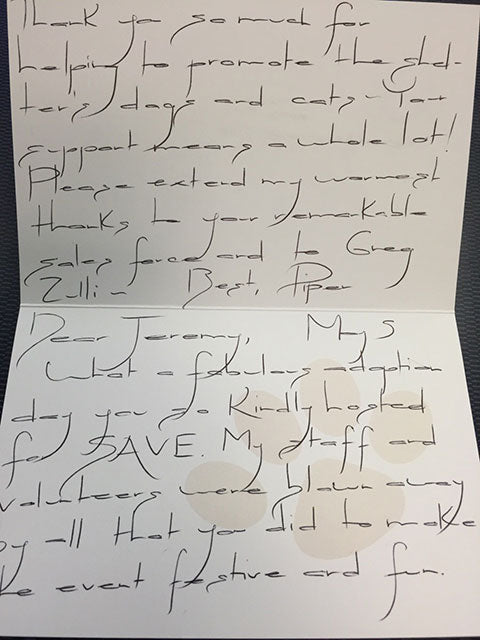 Thank you so much for
helping to promote the shel-
ter's dogs and cats - Your
support means a whole lot!
Please extend my warmest
thanks to your remarkable
sales force and to Greg
Zulli - Best, Piper
Dear Jeremy, May 5
What a fabulous adoption
day you so kindly hosted
for SAVE. My staff and
volunteers were blown away
by all that you did to make
the event festive and fun.